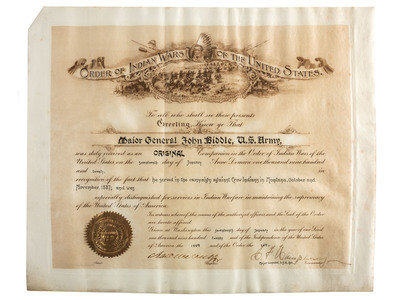 ORDER OF INDIAN WARS OF THE UNITED STATES.
To all who shall see these presents
Greeting, Know ye That
Major General John Biddle, U.S. Army,
was duly received as an ORIGINAL Companion in the Order of Indian Wars of the
United States on the day of Anno Domini one thousand nine hundred
and in
recognition of the fact that he served in the campaign against Crow Indians in Montana, October and
November, 1887, and was
especially distinguished for services in Indian Warfare in maintaining the supremacy
of the United States of America.
In witness whereof the names of the authorized officers and the Seal of the Order
are hereto affixed.
Given at Washington this day of in the year of our Lord
one thousand nine hundred and of the Independence of the United States
of America the and of the Order the